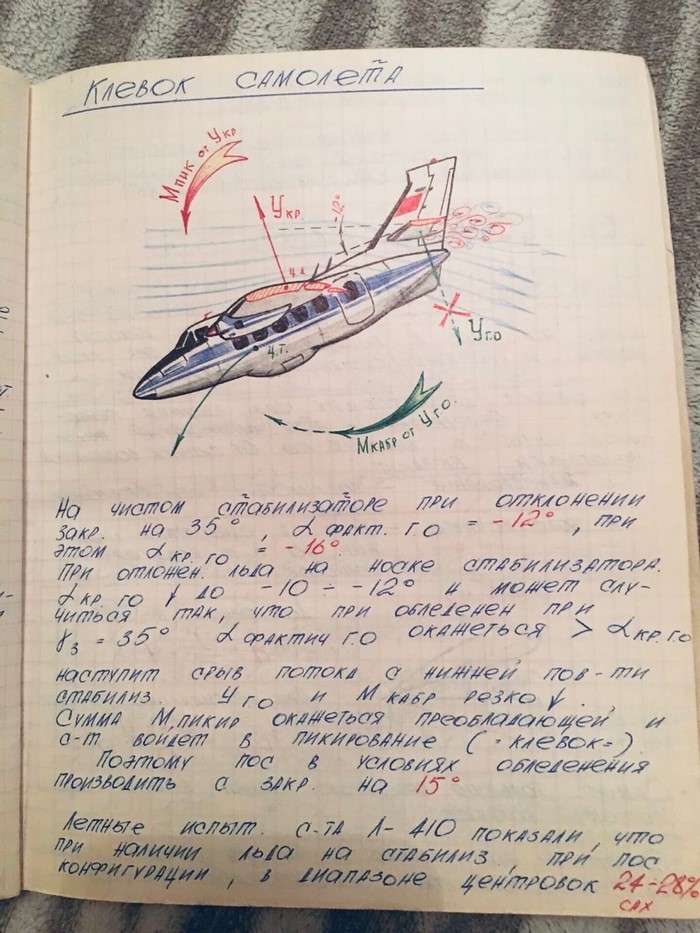 Клевок самолета
М пик от Укр
Укр.
-12°
ц.д
ц.т.
Уг.о
М кабр от Уг.о.
На чистом стабилизаторе при отклонении
закр. на 35°, α факт. г.о = -12°, при
этом α кр. го = -16°.
При отложен. льда на носке стабилизатора.
α кр. го ↓ до -10 ÷ -12° и может слу-
читься так, что при обледенен при
γз = 35° α фактич г.о окажеться > α кр. го
наступит срыв потока с нижней пов-ти
стабилиз. Уго и М кабр резко ↓.
Сумма М.пикир окажеться преобладающей и
с-т войдет в пикирование (=клевок=)
Поэтому пос в условиях обледенения
производить с закр. на 15°
Летные испыт. с-та Л-410 показали, что
при наличии льда на стабилиз., при пос
конфигурации, в диапазоне центровок 24-28%
сах